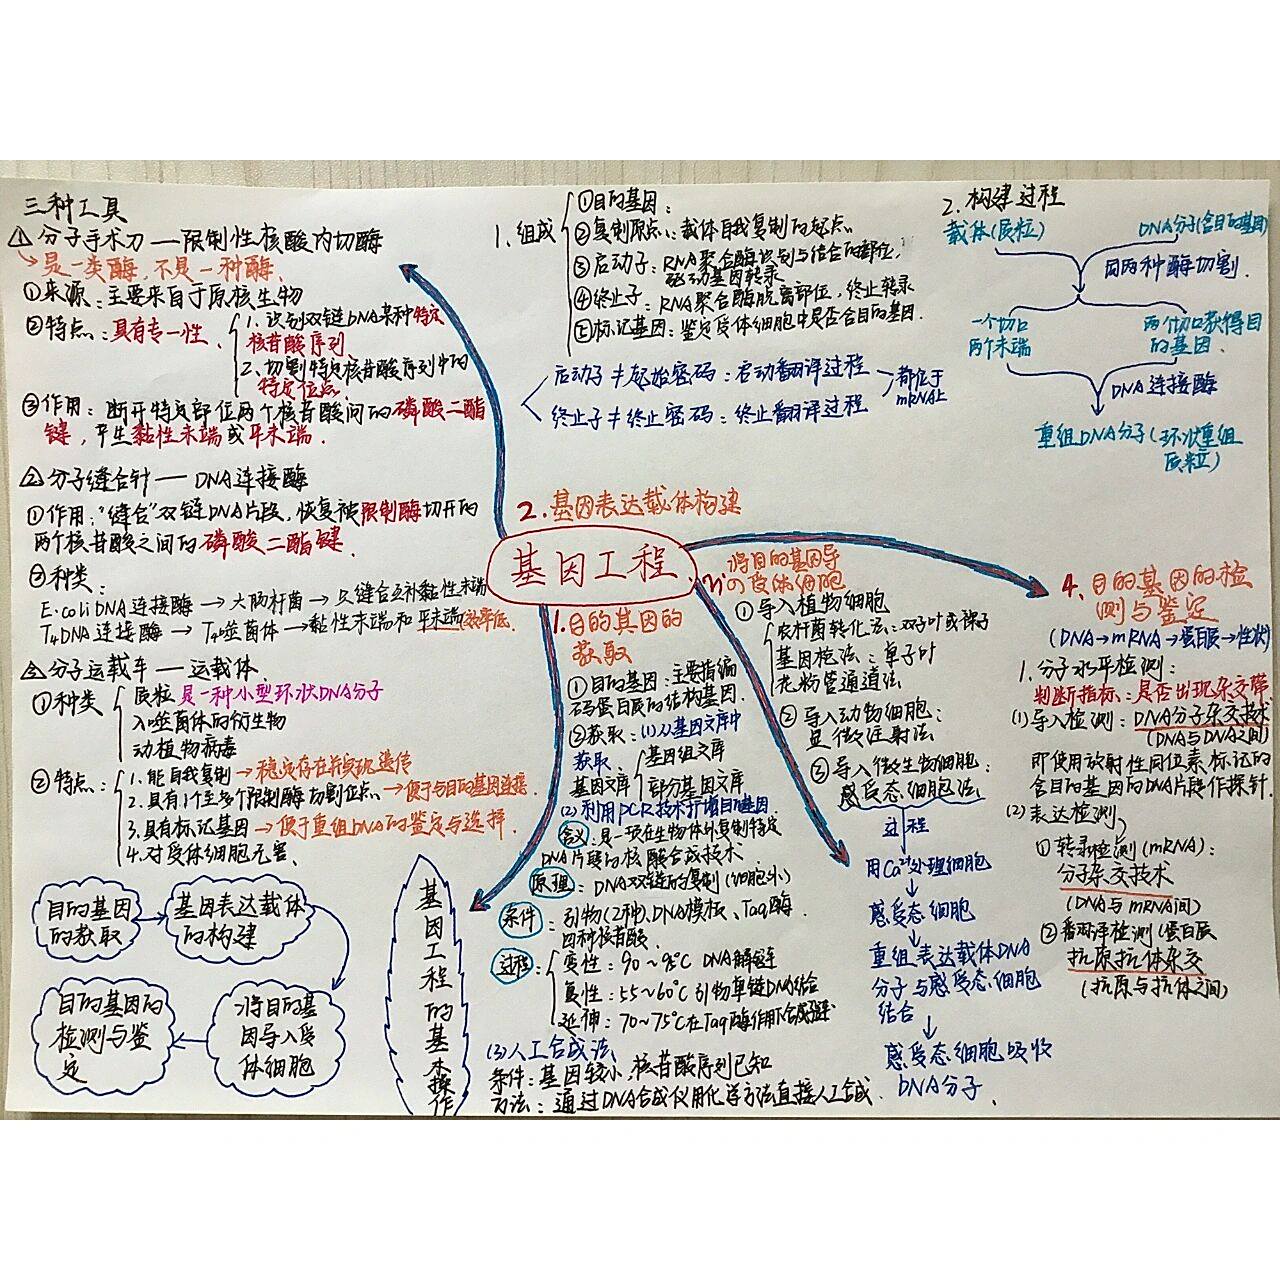 三种工具
1 分子手术刀—限制性核酸内切酶
→是一类酶,不是一种酶.
①来源:主要来自于原核生物
②特点:具有专一性、
1.识别双链DNA某种特定
核苷酸序列
2.切割特定核苷酸序列中的
特定位点.
③作用:断开特定部位两个核苷酸间的磷酸二酯
键,产生黏性末端或平末端.
2 分子缝合针—DNA连接酶
①作用:"缝合"双链DNA片段,恢复被限制酶切开的
两个核苷酸之间的磷酸二酯键.
②种类:
E·coliDNA连接酶→大肠杆菌→只缝合互补黏性末端
T4DNA连接酶→T4噬菌体→黏性末端和平末端(效率低.
3 分子运载车—运载体.
①种类
质粒 是一种小型环状DNA分子
入噬菌体的衍生物
动植物病毒
②特点:
1.能自我复制→稳定存在并实现遗传
2.具有1个至多个限制酶切割位点→便于与目的基因连接.
3.具有标记基因→便于重组DNA的鉴定与选择.
4.对受体细胞无害.
目的基因
的获取
基因表达载体
的构建
将目的基
因导入受
体细胞
目的基因的
检测与鉴
定
基因工程的基本操作
基因工程
1.目的基因的
获取
①目的基因:主要指编
码蛋白质的结构基因.
②获取:(1)从基因文库中
获取、
基因文库
基因组文库
部分基因文库
(2)利用PCR技术扩增目的基因
含义:是一项在生物体外复制特定
DNA片段的核酸合成技术.
原理:DNA双链的复制(细胞外)
条件:引物(2种)、DNA模板、Taq酶、
四种核苷酸.
过程:
变性:90~95℃ DNA解链
复性:55~60℃引物单链DNA结合
延伸:70~75℃在Taq酶作用下合成子链
(3)人工合成法
条件:基因较小,核苷酸序列已知
方法:通过DNA合成仪用化学方法直接人工合成.
2.基因表达载体构建
1.组成
①目的基因:
②复制原点:载体自我复制的起点.
③启动子:RNA聚合酶识别与结合的部位,
驱动基因转录
④终止子:RNA聚合酶脱离部位,终止转录
⑤标记基因:鉴定受体细胞中是否含目的基因.
启动子≠起始密码:启动翻译过程
终止子≠终止密码:终止翻译过程
都位于
mRNA上
2.构建过程
载体(质粒)
DNA分子(含目的基因)
同两种酶切割.
一个切口
两个末端
两个切口获得目
的基因.
DNA连接酶
重组DNA分子(环状重组
质粒)
3.将目的基因导
入受体细胞
①导入植物细胞
农杆菌转化法:双子叶或裸子
基因枪法:单子叶
花粉管通道法
②导入动物细胞:
显微注射法
③导入微生物细胞:
感受态细胞法
过程
用Ca²⁺处理细胞
感受态细胞
重组表达载体DNA
分子与感受态细胞
结合
感受态细胞吸收
DNA分子.
4.目的基因的检
测与鉴定
(DNA→mRNA→蛋白质→性状)
1.分子水平检测:
判断指标:是否出现杂交带
(1)导入检测:DNA分子杂交技术
(DNA与DNA之间)
即使用放射性同位素标记的
含目的基因的DNA片段作探针.
(2)表达检测
①转录检测(mRNA):
分子杂交技术
(DNA与mRNA间)
②翻译检测(蛋白质
抗原抗体杂交
(抗原与抗体之间)